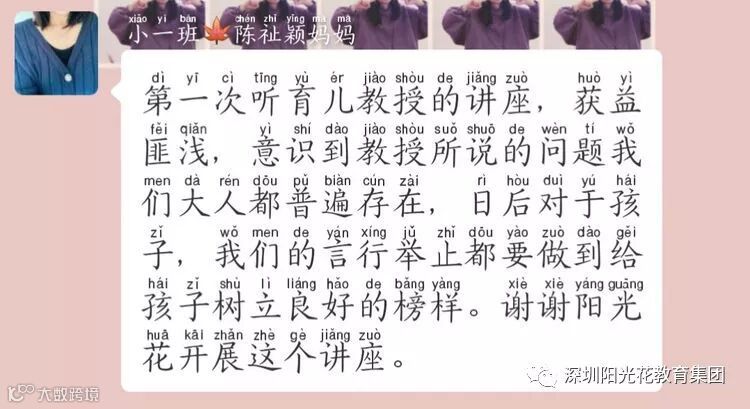 xiǎo yī bān chén zhǐ yǐng mā mā
小一班🍁陈祉颖妈妈
dì yī cì tīng yù ér jiào shòu de jiǎng zuò huò yì
第一次听育儿教授的讲座，获益
fěi qiǎn yì shí dào jiào shòu suǒ shuō de wèn tí wǒ
匪浅，意识到教授所说的问题我
men dà rén dōu pǔ biàn cún zài rì hòu duì yú hái
们大人都普遍存在，日后对于孩
zǐ wǒ men de yán xíng jǔ zhǐ dōu yào zuò dào gěi
子，我们的言行举止都要做到给
hái zǐ shù lì liáng hǎo de bǎng yàng xiè xiè yáng guāng
孩子树立良好的榜样。谢谢阳光
huā kāi zhǎn zhè gè jiǎng zuò
花开展这个讲座。
深圳阳光花教育集团
10100 大数跨境